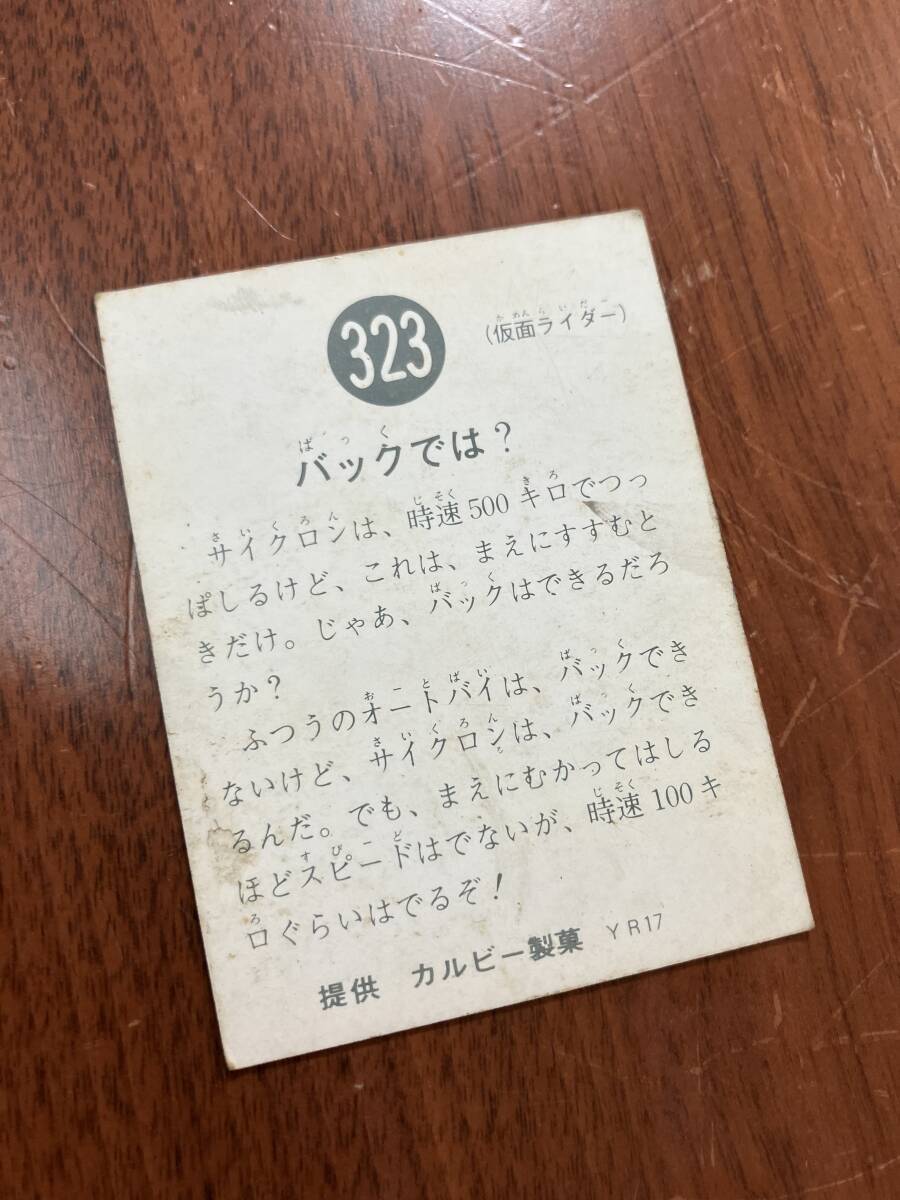 323
(仮面ライダー)
バックでは?
サイクロンは、時速500キロでつっ
ぱしるけど、これは、まえにすすむと
きだけ。じゃあ、バックはできるだろ
うか?
ふつうのオートバイは、バックでき
ないけど、サイクロンは、バックでき
るんだ。でも、まえにむかってはしる
ほどスピードはでないが、時速100キ
ロぐらいはでるぞ!
提供 カルビー製菓 YR17